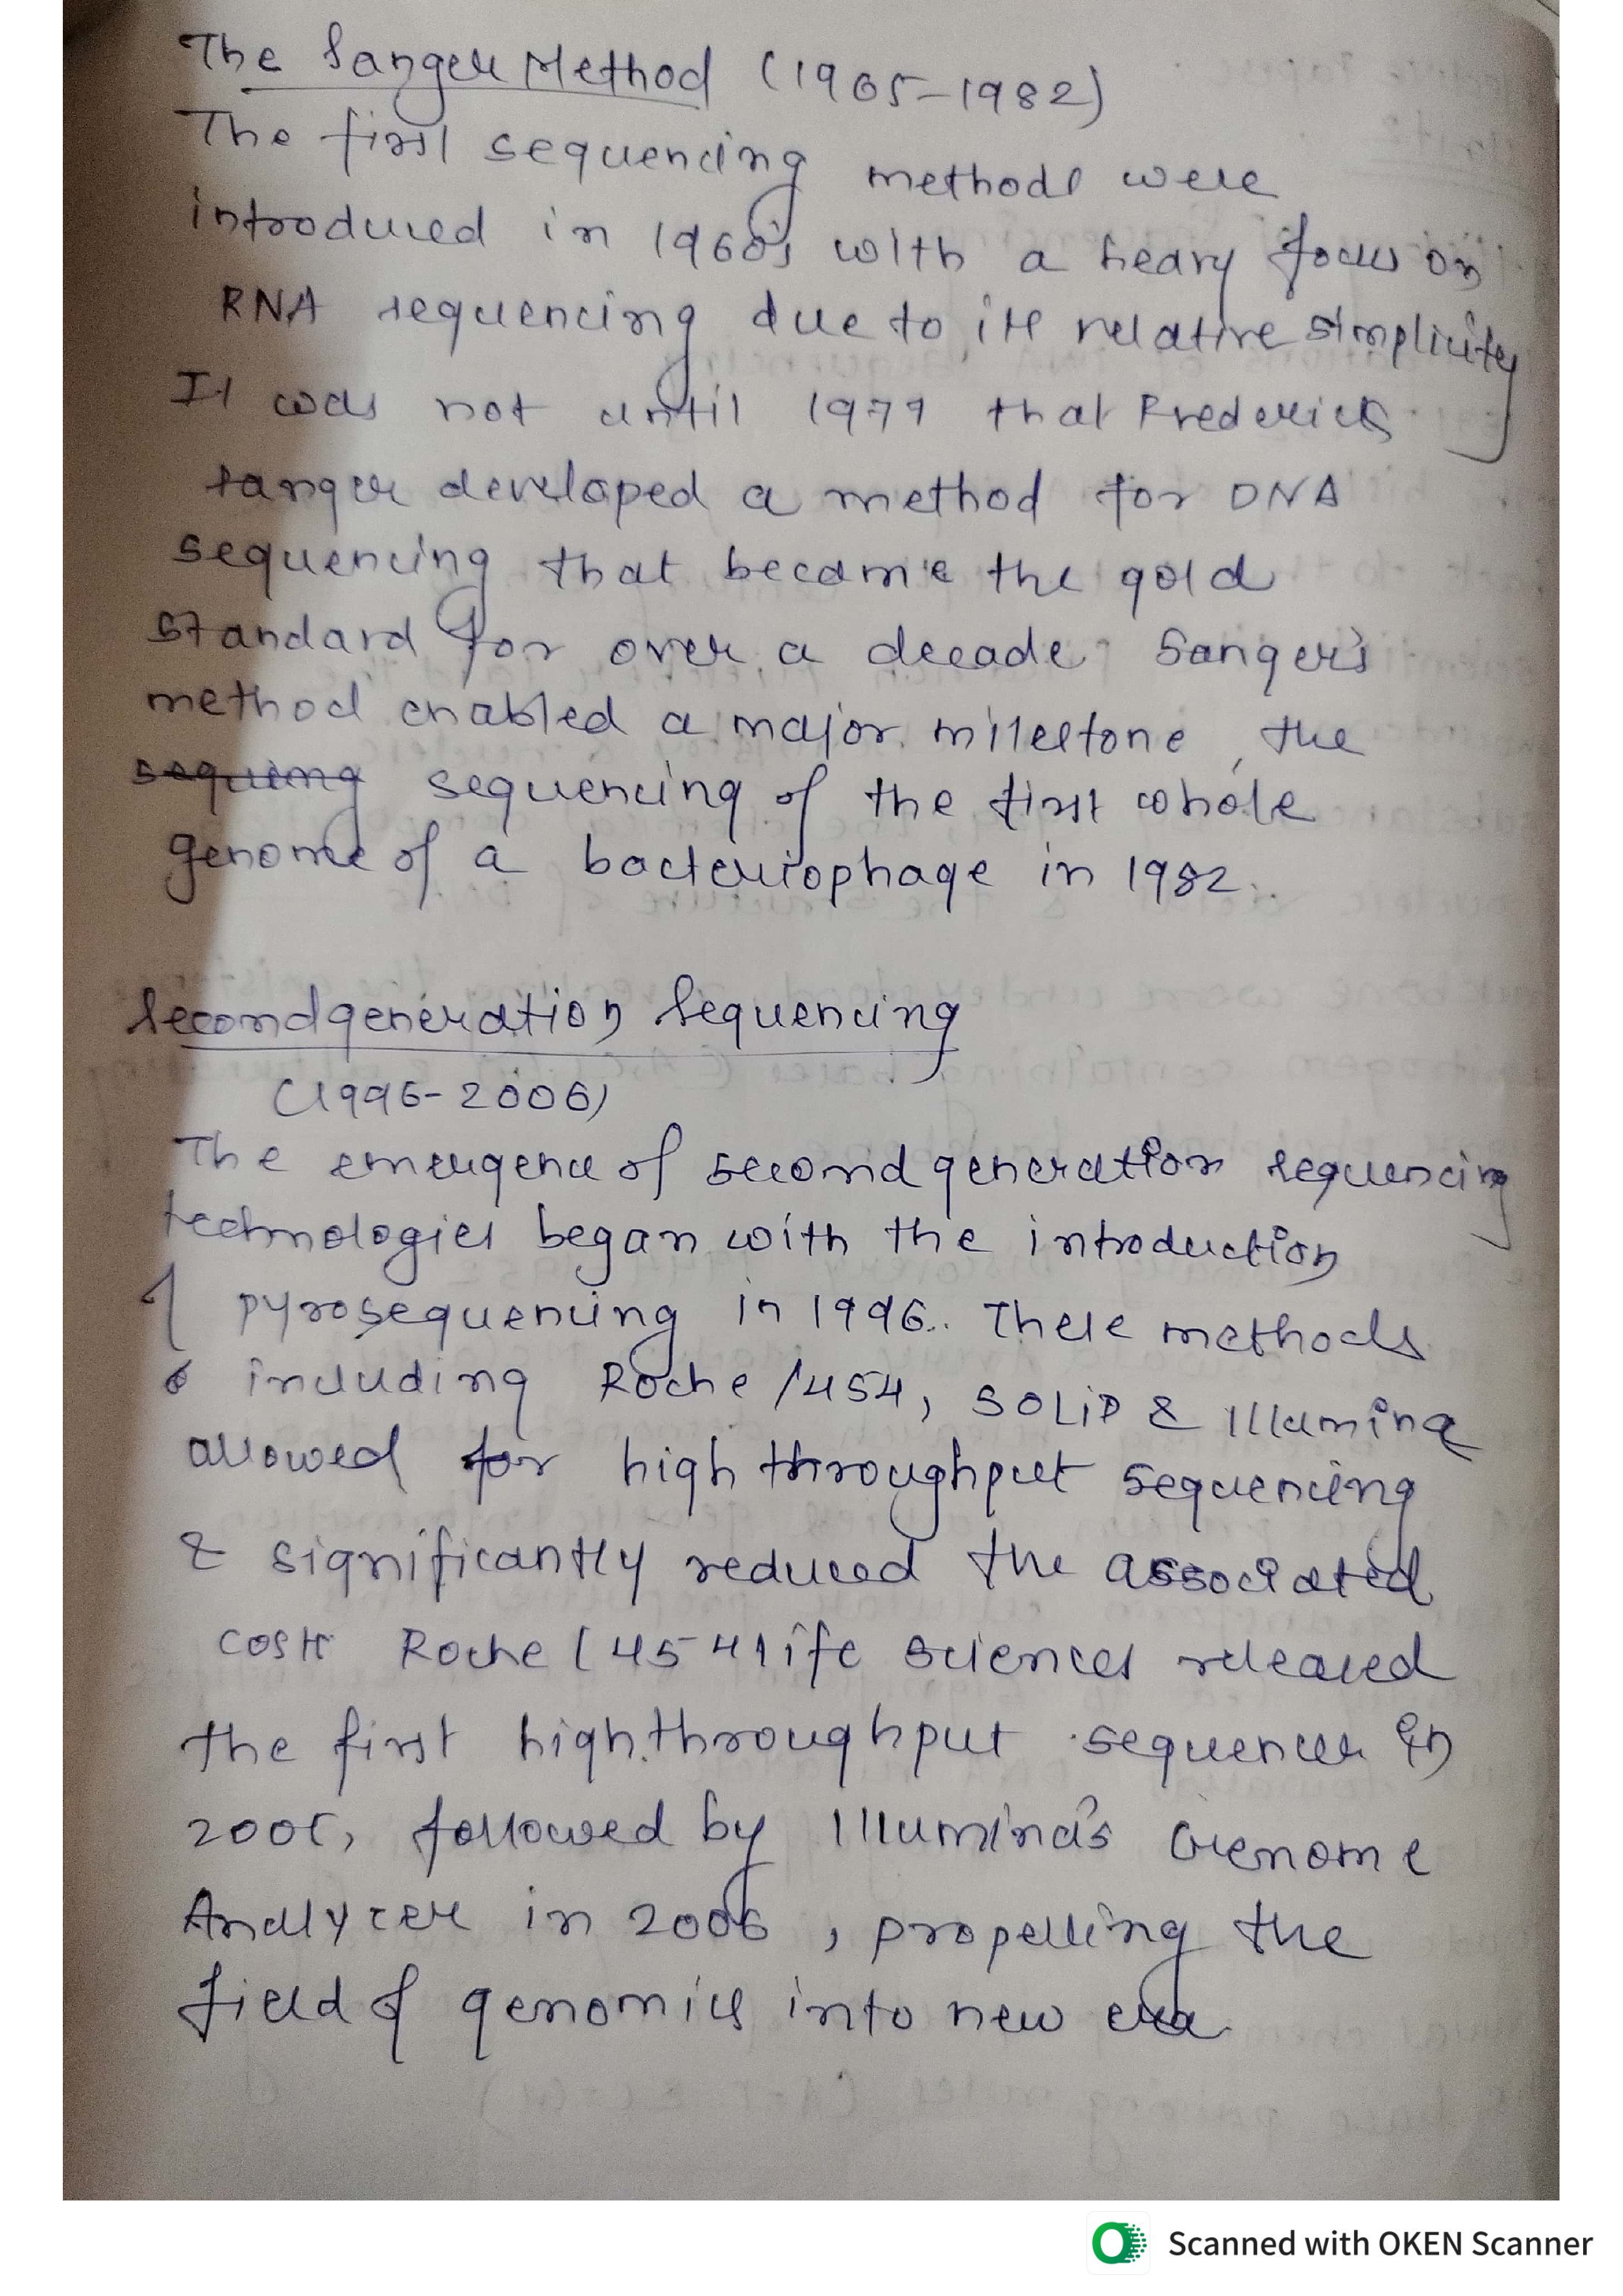 The Sanger Method (1965-1982)
The first sequencing methods were
introduced in 1960's with a heavy focus on
RNA sequencing due to its relative simplicity
It was not until 1977 that Frederick
Sanger developed a method for DNA
sequencing that became the gold
standard for over a decade. Sanger's
method enabled a major milestone, the
sequing sequencing of the first whole
genome of a bacteriophage in 1982.
Second generation Sequencing
(1996-2006)
The emergence of second generation sequencing
technologies began with the introduction
of pyrosequencing in 1996. These methods
including Roche/454, SOLiD & Illumina
allowed for high throughput sequencing
& significantly reduced the associated
costs Roche (454 life sciences released
the first high throughput sequencer in
2005, followed by Illumina's Genome
Analyzer in 2006, propelling the
field of genomics into new era.
Scanned with OKEN Scanner